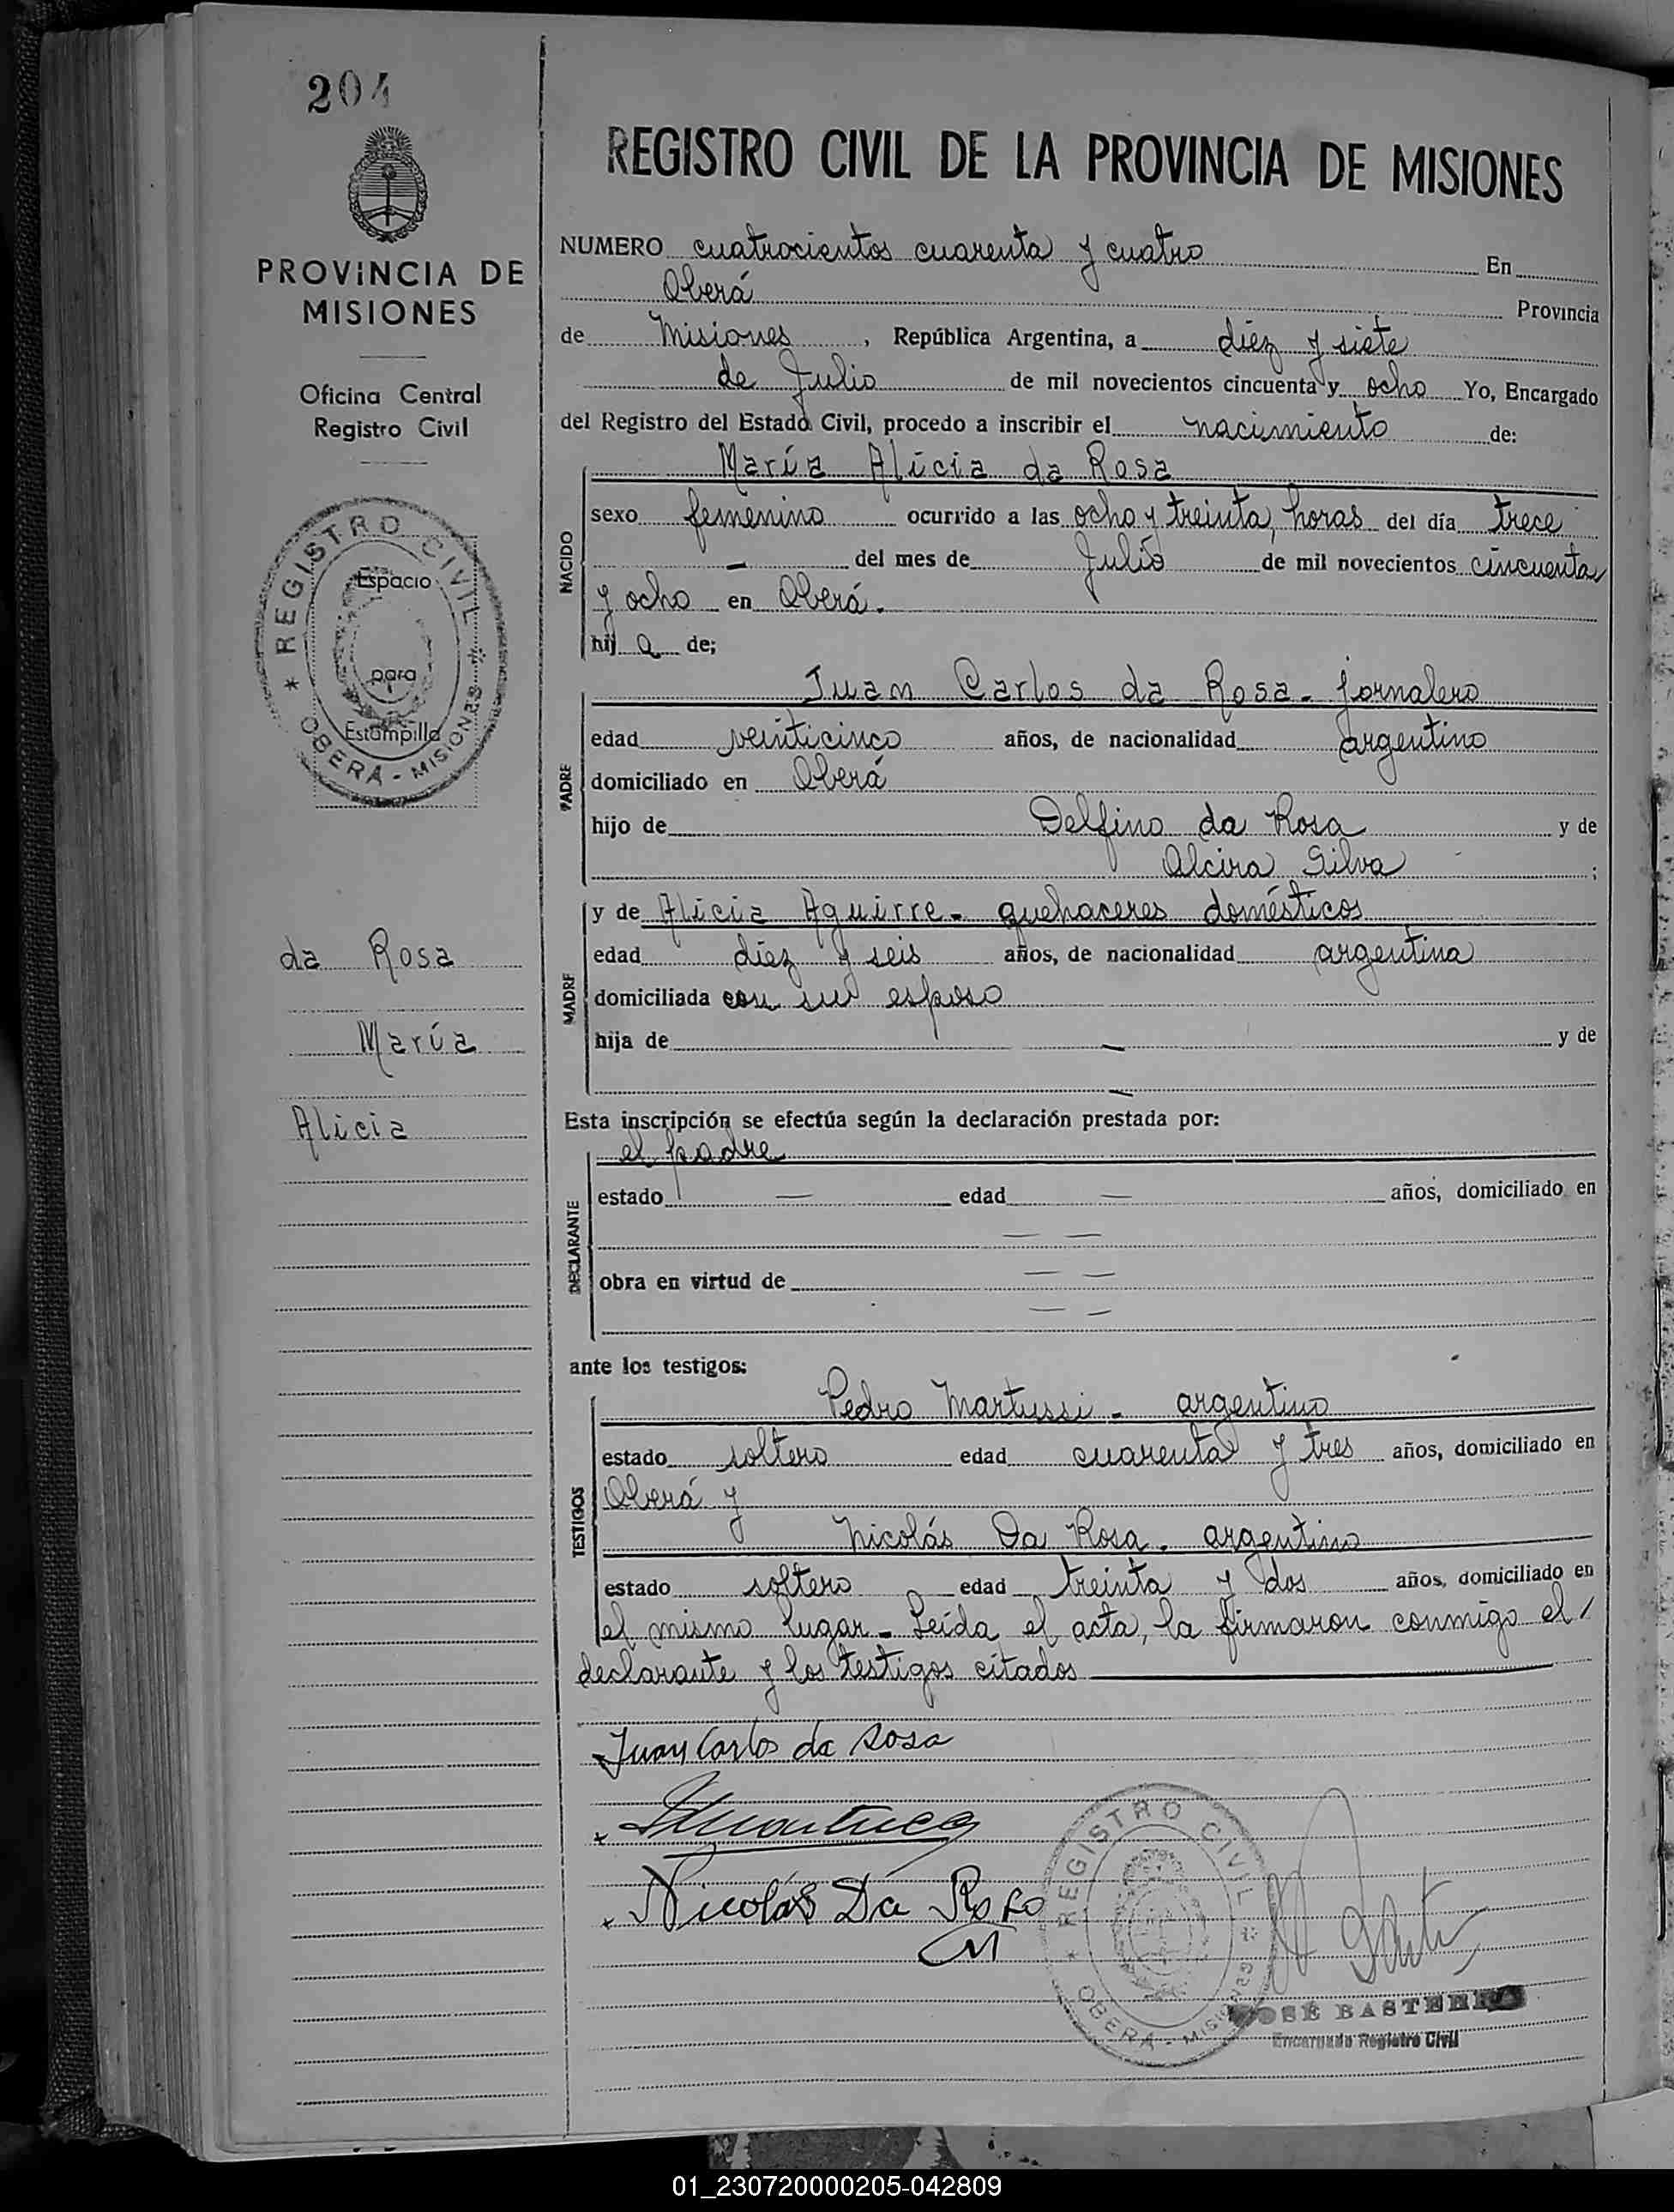 204
PROVINCIA DE
MISIONES
Oficina Central
Registro Civil
REGISTRO CIVIL
Espacio
para
Estampilla
OBERÁ - MISIONES
da Rosa
María
Alicia
REGISTRO CIVIL DE LA PROVINCIA DE MISIONES
NUMERO cuatrocientos cuarenta y cuatro En
Oberá Provincia
de Misiones, República Argentina, a diéz y siete
de Julio de mil novecientos cincuenta y ocho Yo, Encargado
del Registro del Estado Civil, procedo a inscribir el nacimiento de:
NACIDO
María Alicia da Rosa
sexo femenino ocurrido a las ocho y treinta, horas del día trece
- del mes de Julio de mil novecientos cincuenta
y ocho en Oberá.
hij a de;
PADRE
Juan Carlos da Rosa - jornalero
edad veinticinco años, de nacionalidad argentino
domiciliado en Oberá
hijo de Delfino da Rosa y de
Alcira Silva ;
MADRE
y de Alicia Aguirre - quehaceres domésticos
edad diéz y seis años, de nacionalidad argentina
domiciliada con su esposo
hija de - y de
-
Esta inscripción se efectúa según la declaración prestada por:
DECLARANTE
el padre
estado - edad - años, domiciliado en
- -
obra en virtud de - -
- -
ante los testigos:
TESTIGOS
Pedro Martussi - argentino
estado soltero edad cuarenta y tres años, domiciliado en
Oberá y
Nicolás Da Rosa - argentino
estado soltero edad treinta y dos años, domiciliado en
el mismo lugar - Leída el acta, la firmaron conmigo el /
declarante y los testigos citados
Juan Carlos da Rosa
Nicolás Da Rosa
REGISTRO CIVIL
OBERÁ - MISIONES
JOSÉ BASTERRA
Encargado Registro Civil
01_230720000205-042809